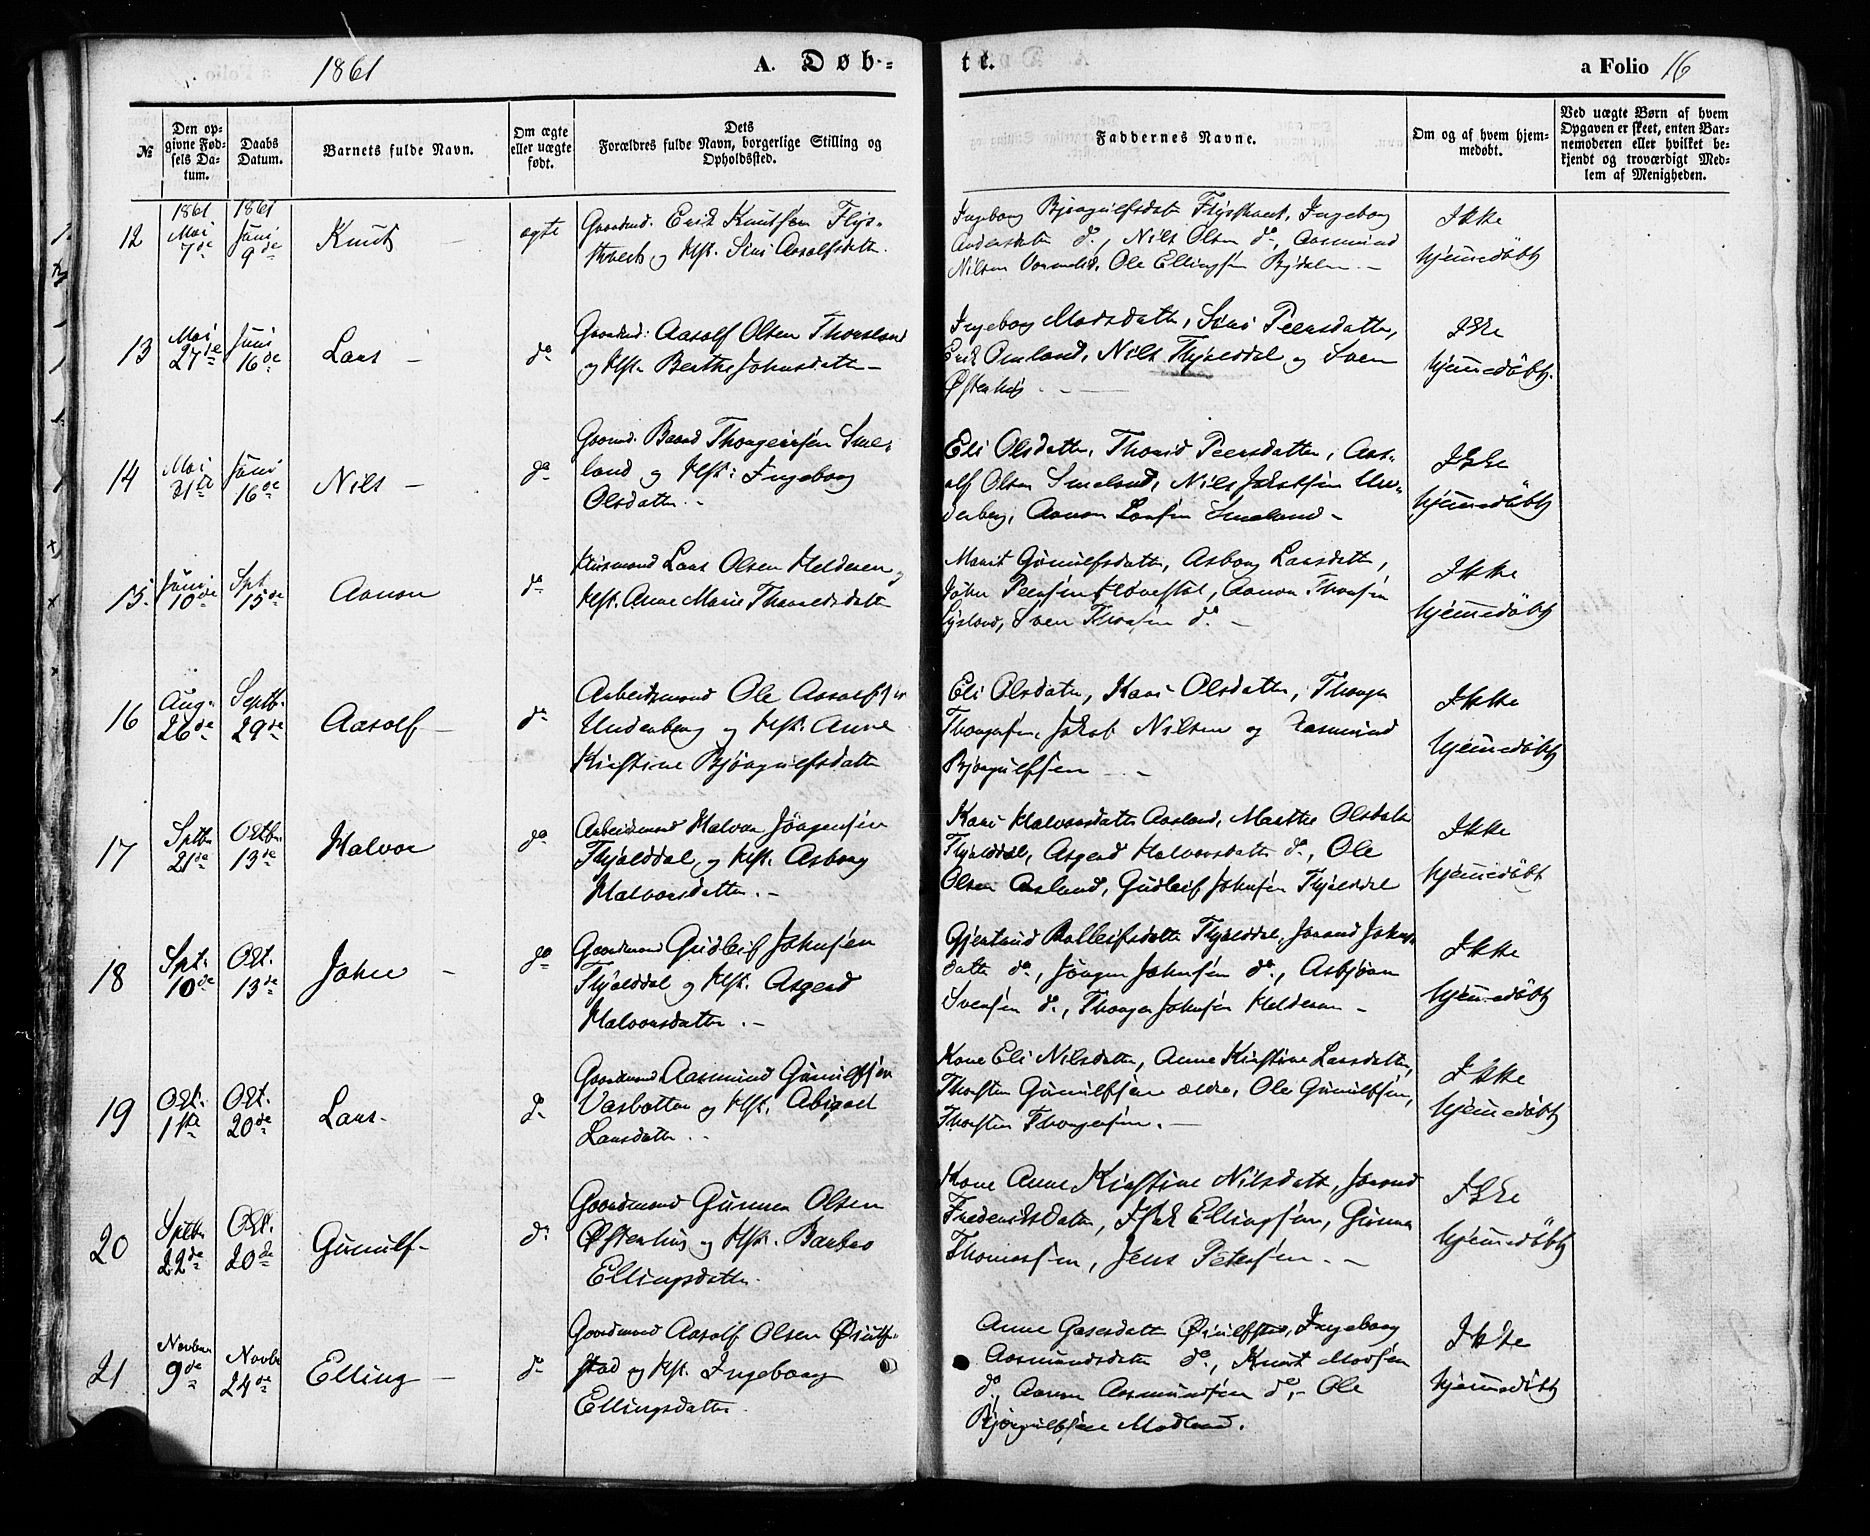 1861
A. Døb-
te.
a Folio 16
№
Den op-
givne Fød-
sels Da-
tum.
Daabs
Datum.
Barnets fulde Navn.
Om ægte
eller uægte
født.
Dets
Forældres fulde Navn, borgerlige Stilling og
Opholdssted.
Faddernes Navne.
Om og af hvem hjem-
medøbt.
Ved uægte Børn af hvem
Opgaven er skeet, enten Bar-
nemoderen eller hvilket be-
kjendt og troværdigt Med-
lem af Menigheden.
12
1861 Mai 7de
1861 Juni 9de
Knut
ægte
Gaardmd. Erik Knutsen
og Hst. Siri Aasolfsdatter
Ingeborg Bjørgulfsdatr Ingeborg
Andersdatter do, Nils Olsen do, Aasmund
Nilsen Ole Ellingsen
Ikke
hjemmedøbt
13
Mai 27de
Juni 16de
Lars -
do
Gaardmd: Aasolf Olsen Thorsland
og Hst. Berthe Johnsdatter -
Ingeborg Madsdatter, Siri Peersdatter,
Erik Omland, Nils Fhjælddal og Sven
Østerhus
Ikke
hjemmedøbt.
14
Mai 31te
Juni 16de
Nils -
do
Gaardmd. Baard Thorgeirsen Sme-
land og Hst: Ingeborg
Olsdatter. -
Eli Olsdatter, Thorid Peersdatter, Aas-
olf Olsen Smeland, Nils Un-
derberg, Aanon Larsen Smeland -
Ikke
hjemmedøbt
15.
Juni 10de
Spt. 15de
Aanon
do
Huusmand Lars Olsen Helderen og
Hst. Anne Marie
Marit Gunulfsdatter, Asborg Larsdatter,
John Peersen Aanon Thorsen
Lysland, Sven Thorsen do -
Ikke
hjemmedøbt
16
Aug. 26de
Septb. 29de
Aasolf -
do
Arbeidsmand Ole Aasolfsen
Underberg og Hst: Anne
Kirstine Bjørgulfsdatter
Eli Olsdatter, Kari Olsdatter, Thorger
Thorgersen, Jakob Nilsen og Aasmund
Bjørgulfsen -
Ikke
hjemmedøbt
17
Sptbr 21de
Octbr 13de
Halvor
do
Arbeidsmand Halvor Jørgensen
Fhjælddal, og Hst. Asborg
Halvorsdatter. -
Kari Halvorsdatter Aasland, Marthe Olsdatter
Fhjælddal, Asgerd Halvorsdatter do, Ole
Olsen Aasland, Gudleif Johnsen Fhjælddal
Ikke
hjemmedøbt
18
Spt. 10de
Oct. 13de
John -
do
Gaardmand Gudleif Johnsen
Fhjælddal og Hst. Asgerd
Halvorsdatter. -
Gjertrud Fhjælddal, Jorand Johns-
datter do, Jørgen Johnsen do, Asbjørn
Svensen do, Thorger Johnsen Helderen -
Ikke
hjemmedøbt
19
Oct. 1ste
Oct. 20de
Lars.
do
Gaardmand Aasmund Gunulfsen
Vasbotten og Hst. Abigael
Larsdatter. -
Kone Eli Nilsdatter, Anne Kirstine Larsdatter,
Thorsten Gunulfsen ældre, Ole Gunulfsen,
Thorsten Thorgersen. -
Ikke
hjemmedøbt
20
Sptbr 22de
Oct. 20de
Gunulf -
do
Gaardmand Gunnar Olsen
Østerhus og Hst. Barbro
Ellingsdatter.
Kone Anne Kirstine Nilsdatt, Jorand
Frederiksdatter, Isak Ellingsen, Gunnar
Thomassen, Jens Petersen. -
Ikke
hjemmedøbt
21
Novbr 9de
Novbr 24de
Elling -
do
Gaardmand Aasolf Olsen Øiulfs-
stad og Hst. Ingeborg
Ellingsdatter
Anne Øiulfstad, Ingeborg
Aasmundsdatter do, Knut
do, Aanon Aasmundsen do, - Ole
Bjørgulfsen Modland.
Ikke
hjemmedøbt